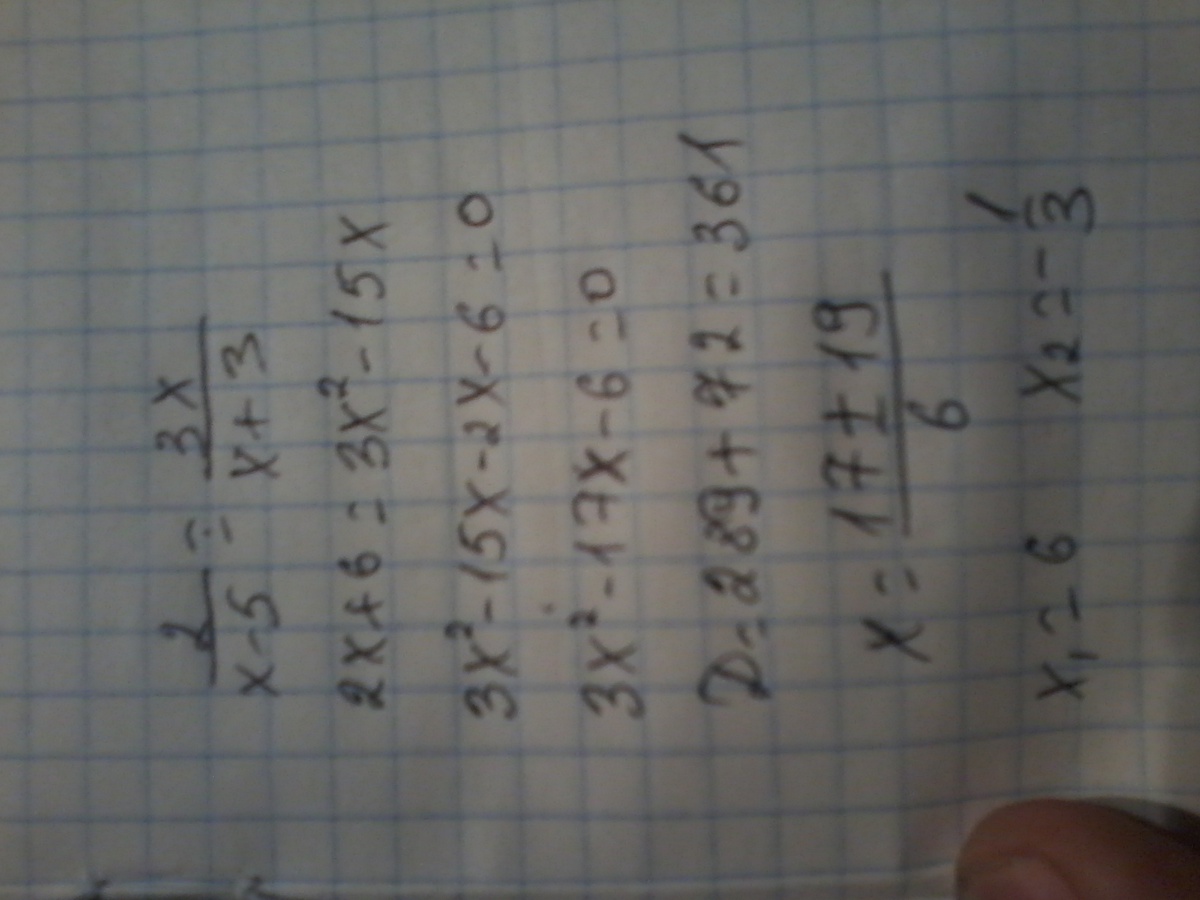 2/(x-5) = 3x/(x+3)
2x+6=3x²-15x
3x²-15x-2x-6=0
3x²-17x-6=0
D=289+72=361
x=(17±19)/6
x₁=6 x₂=-1/3